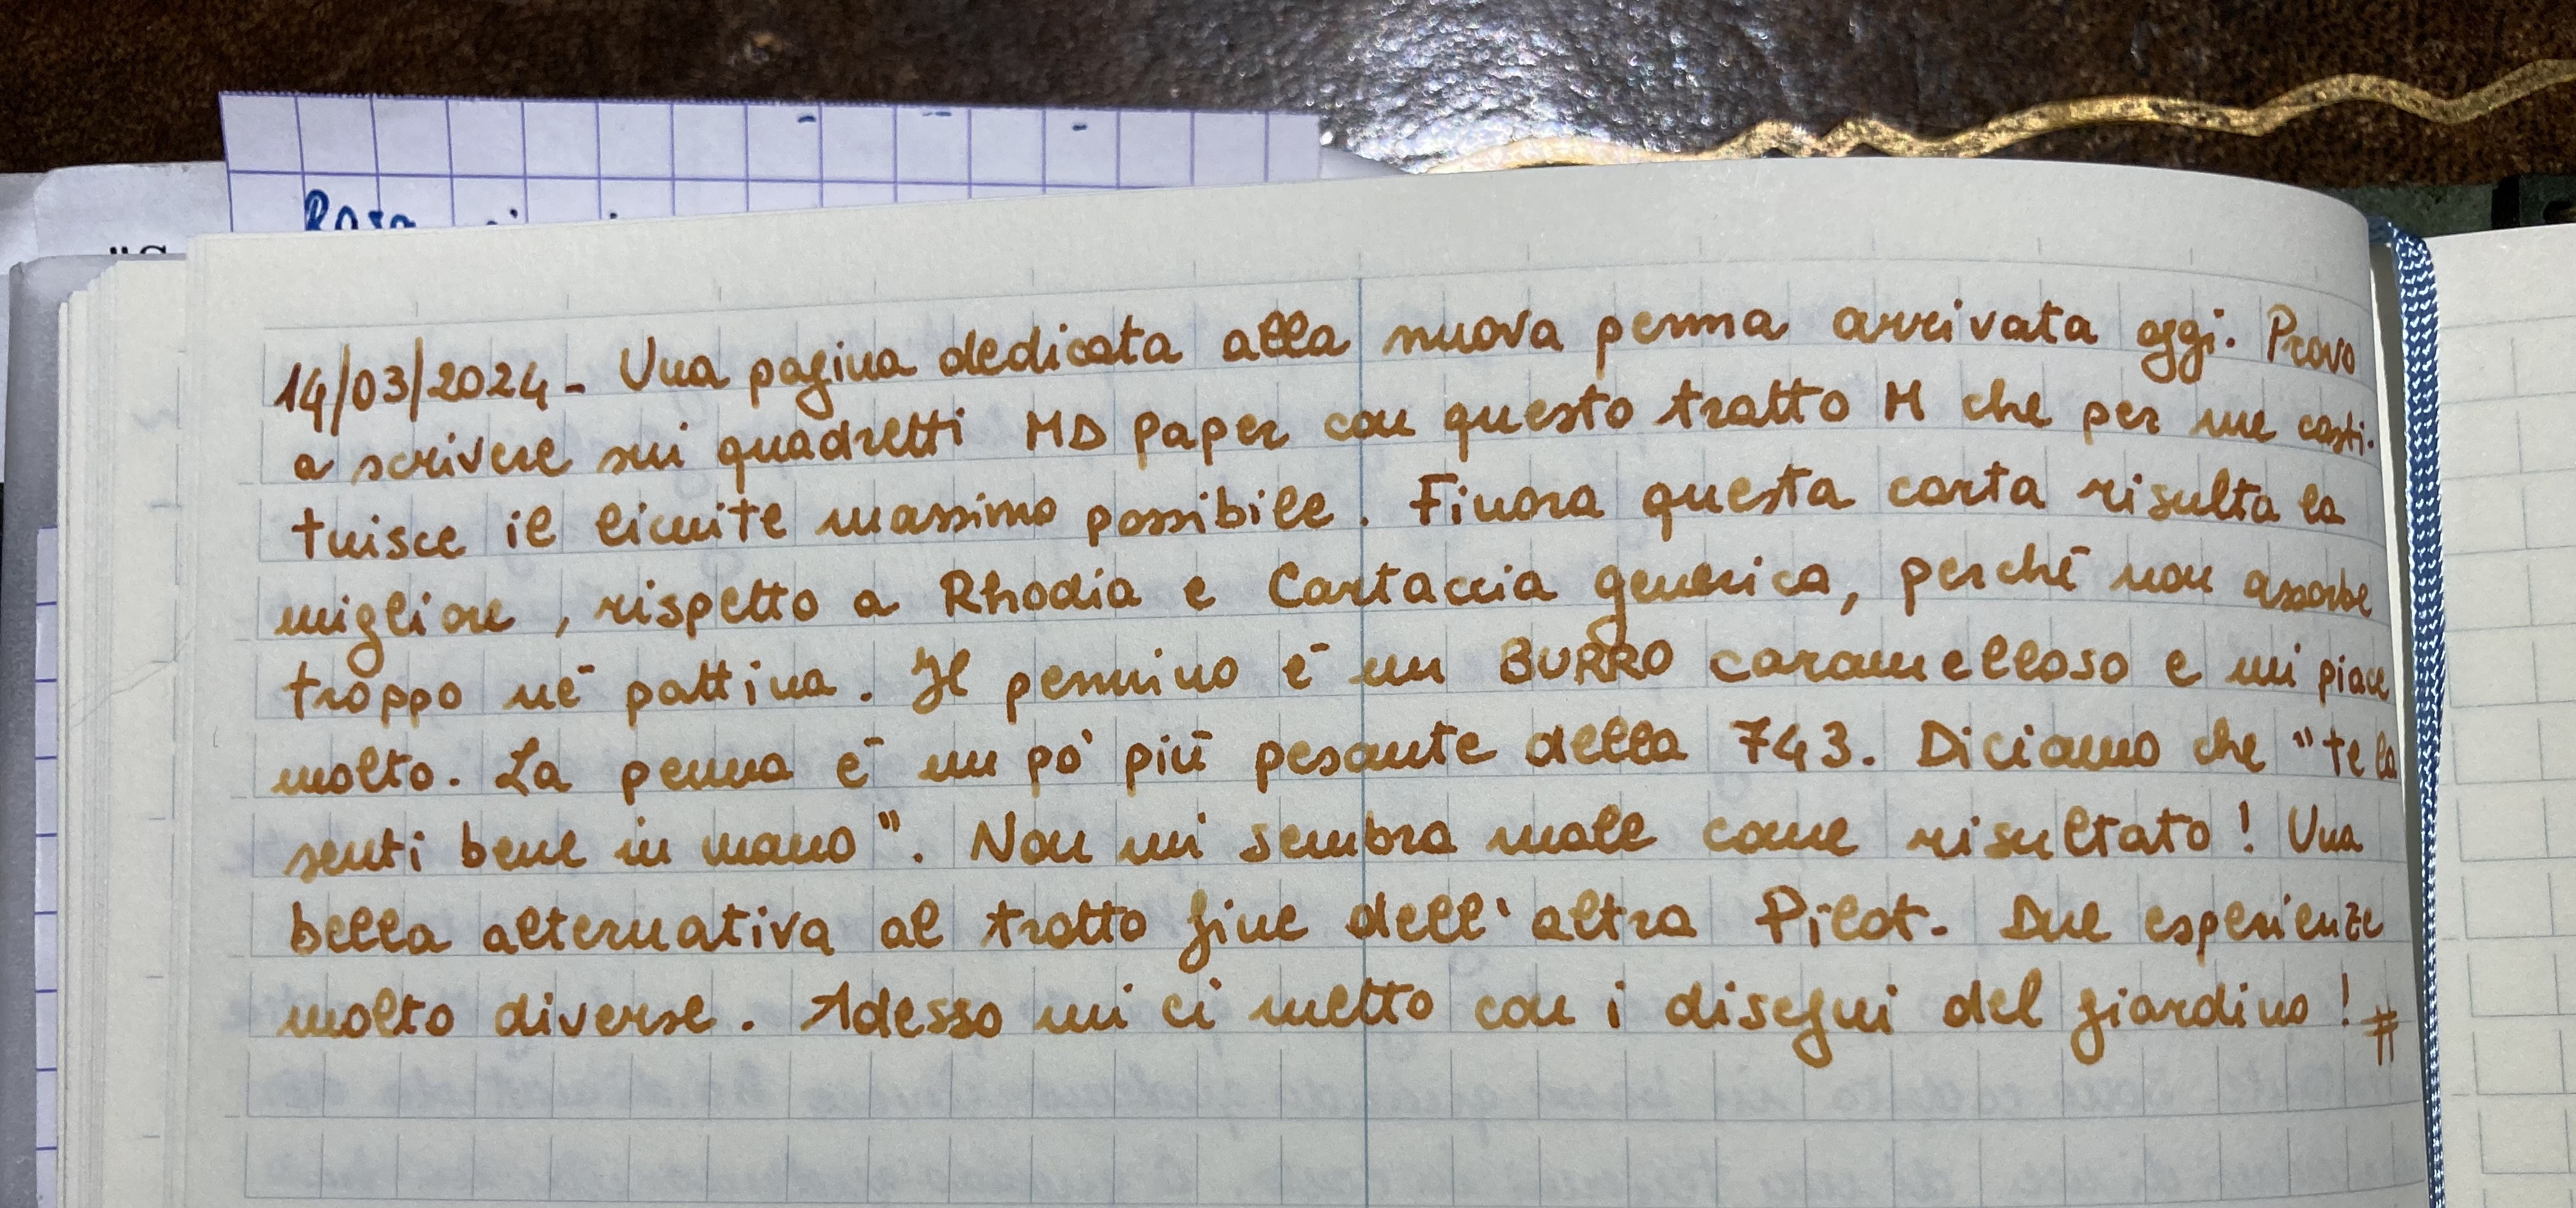 Rosa
14/03/2024 - Una pagina dedicata alla nuova penna arrivata oggi. Provo
a scrivere sui quadretti MD paper con questo tratto M che per me costi-
tuisce il limite massimo possibile. Finora questa carta risulta la
migliore, rispetto a Rhodia e Cartaccia generica, perché non assorbe
troppo né pattina. Il pennino è un BURRO caramelloso e mi piace
molto. La penna è un pò più pesante della 743. Diciamo che "te la
senti bene in mano". Non mi sembra male come risultato! Una
bella alternativa al tratto fine dell'altra Pilot. Due esperienze
molto diverse. Adesso mi ci metto con i disegni del giardino! #